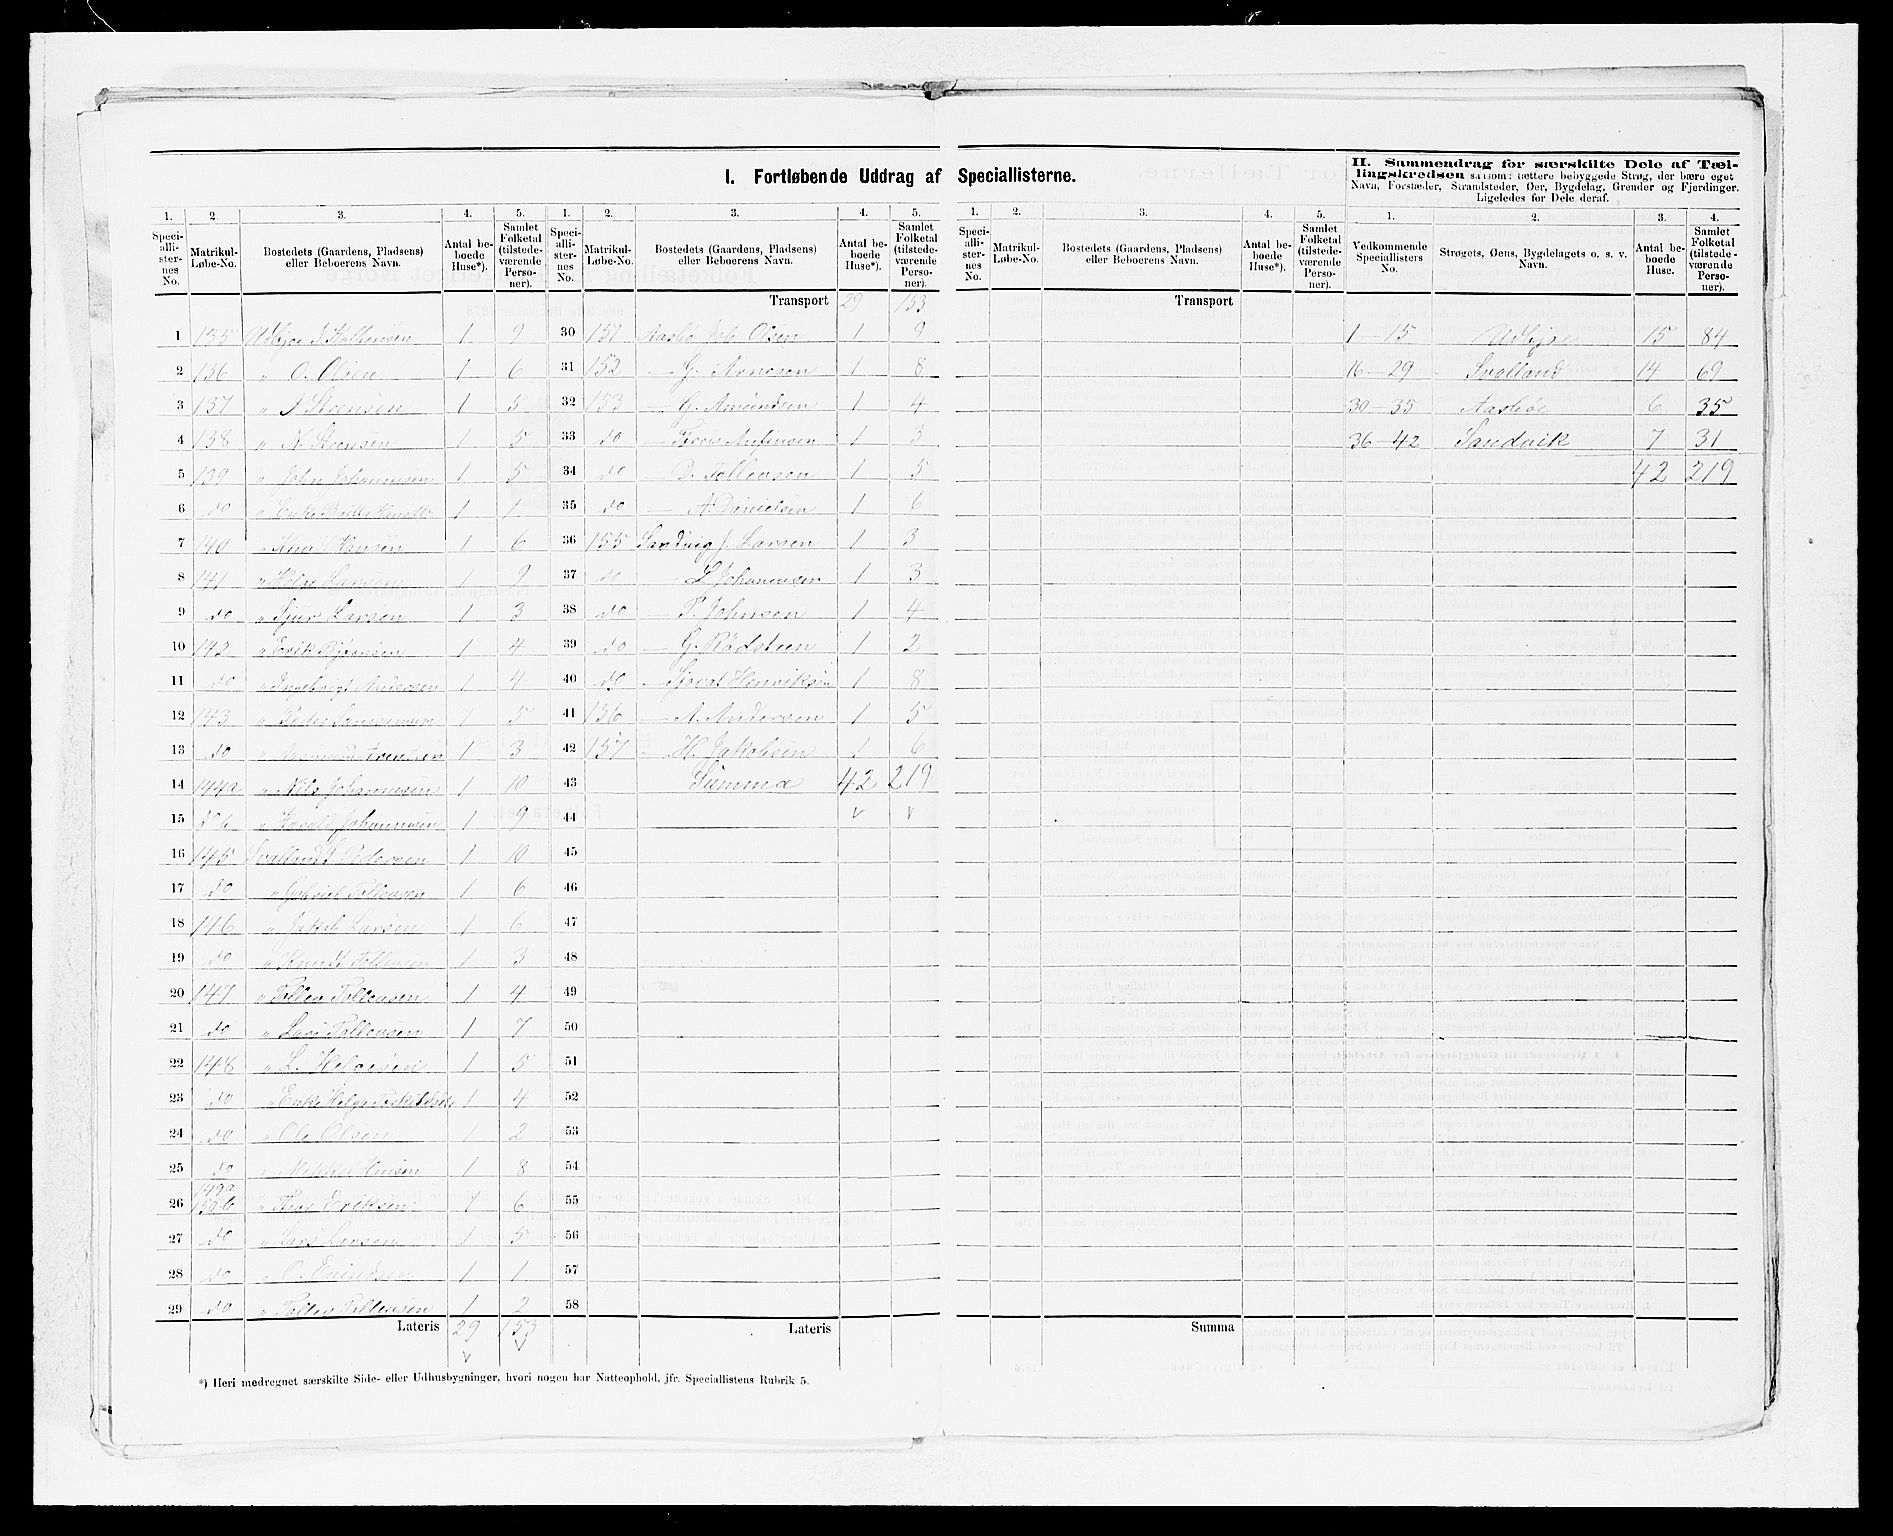 I. Fortløbende Uddrag af Speciallisterne.
II. Sammendrag for særskilte Dele af Tællingskredsen saasom: tættere bebyggede Strøg, der bære eget
Navn, Forstæder, Strandsteder, Øer, Bygdelag, Grender og Fjerdinger.
Ligeledes for Dele deraf.
1. 2. 3. 4. 5. 1. 2. 3. 4. 5. 1. 2. 3. 4. 5. 1. 2. 3. 4.
Speciallisternes No. Matrikul-Løbe-No. Bostedets (Gaardens, Pladsens) eller Beboerens Navn. Antal beboede Huse*). Samlet Folketal (tilstedeværende Personer).
Speciallisternes No. Matrikul-Løbe-No. Bostedets (Gaardens, Pladsens) eller Beboerens Navn. Antal beboede Huse*). Samlet Folketal (tilstedeværende Personer).
Speciallisternes No. Matrikul-Løbe-No. Bostedets (Gaardens, Pladsens) eller Beboerens Navn. Antal beboede Huse*). Samlet Folketal (tilstedeværende Personer).
Vedkommende Speciallisters No. Strøgets, Øens, Bygdelagets o. s. v. Navn. Antal beboede Huse. Samlet Folketal (tilstedeværende Personer).
1 135 1 9
2 136 " O. Olsen 1 6
3 137 " Steensen 1 5
4 138 " N. Steensen 1 5
5 139 " John Johannesen 1 5
6 do " Enke 1 1
7 140 " Hansen 1 6
8 141 " Helge Larsen 1 9
9 do " Sjur Larsen 1 3
10 142 " Erik 1 4
11 do " Ingebrigt Andersen 1 4
12 143 " Peder 1 5
13 do " 1 3
14 144a " Nils Johannesen 1 10
15 do b " Johannesen 1 9
16 145 Svolland Pedersen 1 10
17 do " Gabriel Tollevsen 1 6
18 146 " Jakob Larsen 1 6
19 do " Knud Tollevsen 1 3
20 147 " Tollev Tollevsen 1 4
21 do " Lars Tollevsen 1 7
22 148 " L. Helgesen 1 5
23 do " Enke Helga 1 4
24 do " Ole Olsen 1 2
25 do " Mikkel 1 8
26 149a 150b " 1 6
27 do " Lars Larsen 1 5
28 do " O. 1 1
29 do " Tollev Tollevsen 1 2
Lateris 29 153
Transport 29 153
30 151 Aasbø Joh. Olsen 1 9
31 152 — G. Arnesen 1 8
32 153 — G. Amundsen 1 4
33 do — 1 3
34 do — Tollevsen 1 5
35 do — A. Danielsen 1 6
36 155 Sandvig J. Larsen 1 3
37 do — L. Johannesen 1 3
38 do — P. Johnsen 1 4
39 do — G. Rødsteen 1 2
40 do — Henriksen 1 8
41 156 — A. Andersen 1 5
42 157 — H. Jakobsen 1 6
43 Summa 42 219
44
45
46
47
48
49
50
51
52
53
54
55
56
57
58
Lateris
Transport
Summa
1—15 Udbjoe 15 84
16—29 Svolland 14 69
30—35 Aasbøe 6 35
36—42 Sandvik 7 31
42 219
*) Heri medregnet særskilte Side- eller Udhusbygninger, hvori nogen har Natteophold, jfr. Speciallistens Rubrik 5.